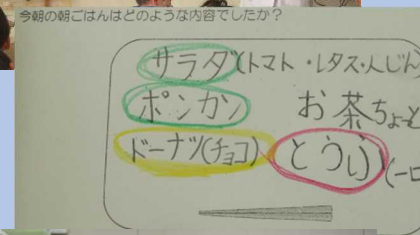 今朝の朝ごはんはどのような内容でしたか？
サラダ(トマト・レタス・人じん
ポンカン お茶ちょーと
ドーナツ(チョコ) とうふ (一口